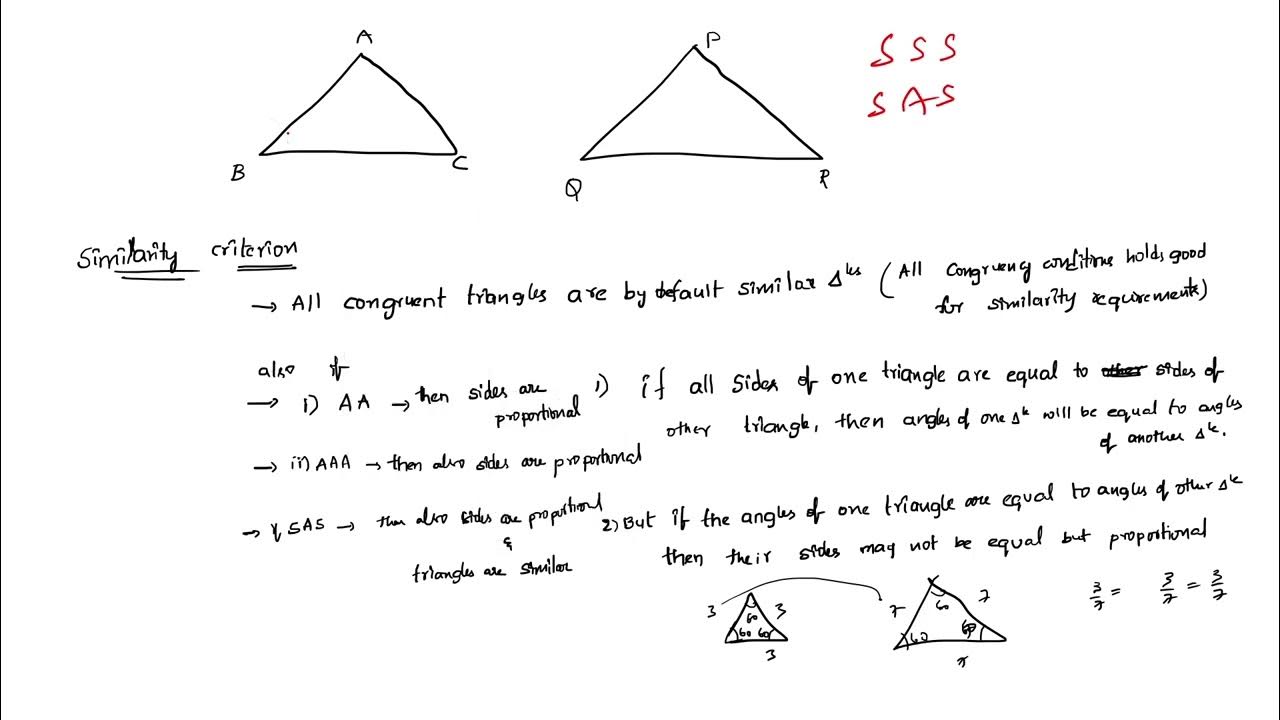 A
P
S S S
S A S
B
C
Q
R
Similarity criterion
→ All congruent triangles are by default similar Δles (All congruency conditions holds good
for similarity requirements)
also if
→ i) AA → then sides are
proportional
→ ii) AAA → then also sides are proportional
→ SAS → then also sides are proportional
&
triangles are similar
1) if all sides of one triangle are equal to sides of
other triangle, then angles of one Δle will be equal to angles
of another Δle.
2) But if the angles of one triangle are equal to angles of other Δle
then their sides may not be equal but proportional
3 3
60
60 60
3
7 7
60
60 60
7
3/7 = 3/7 = 3/7